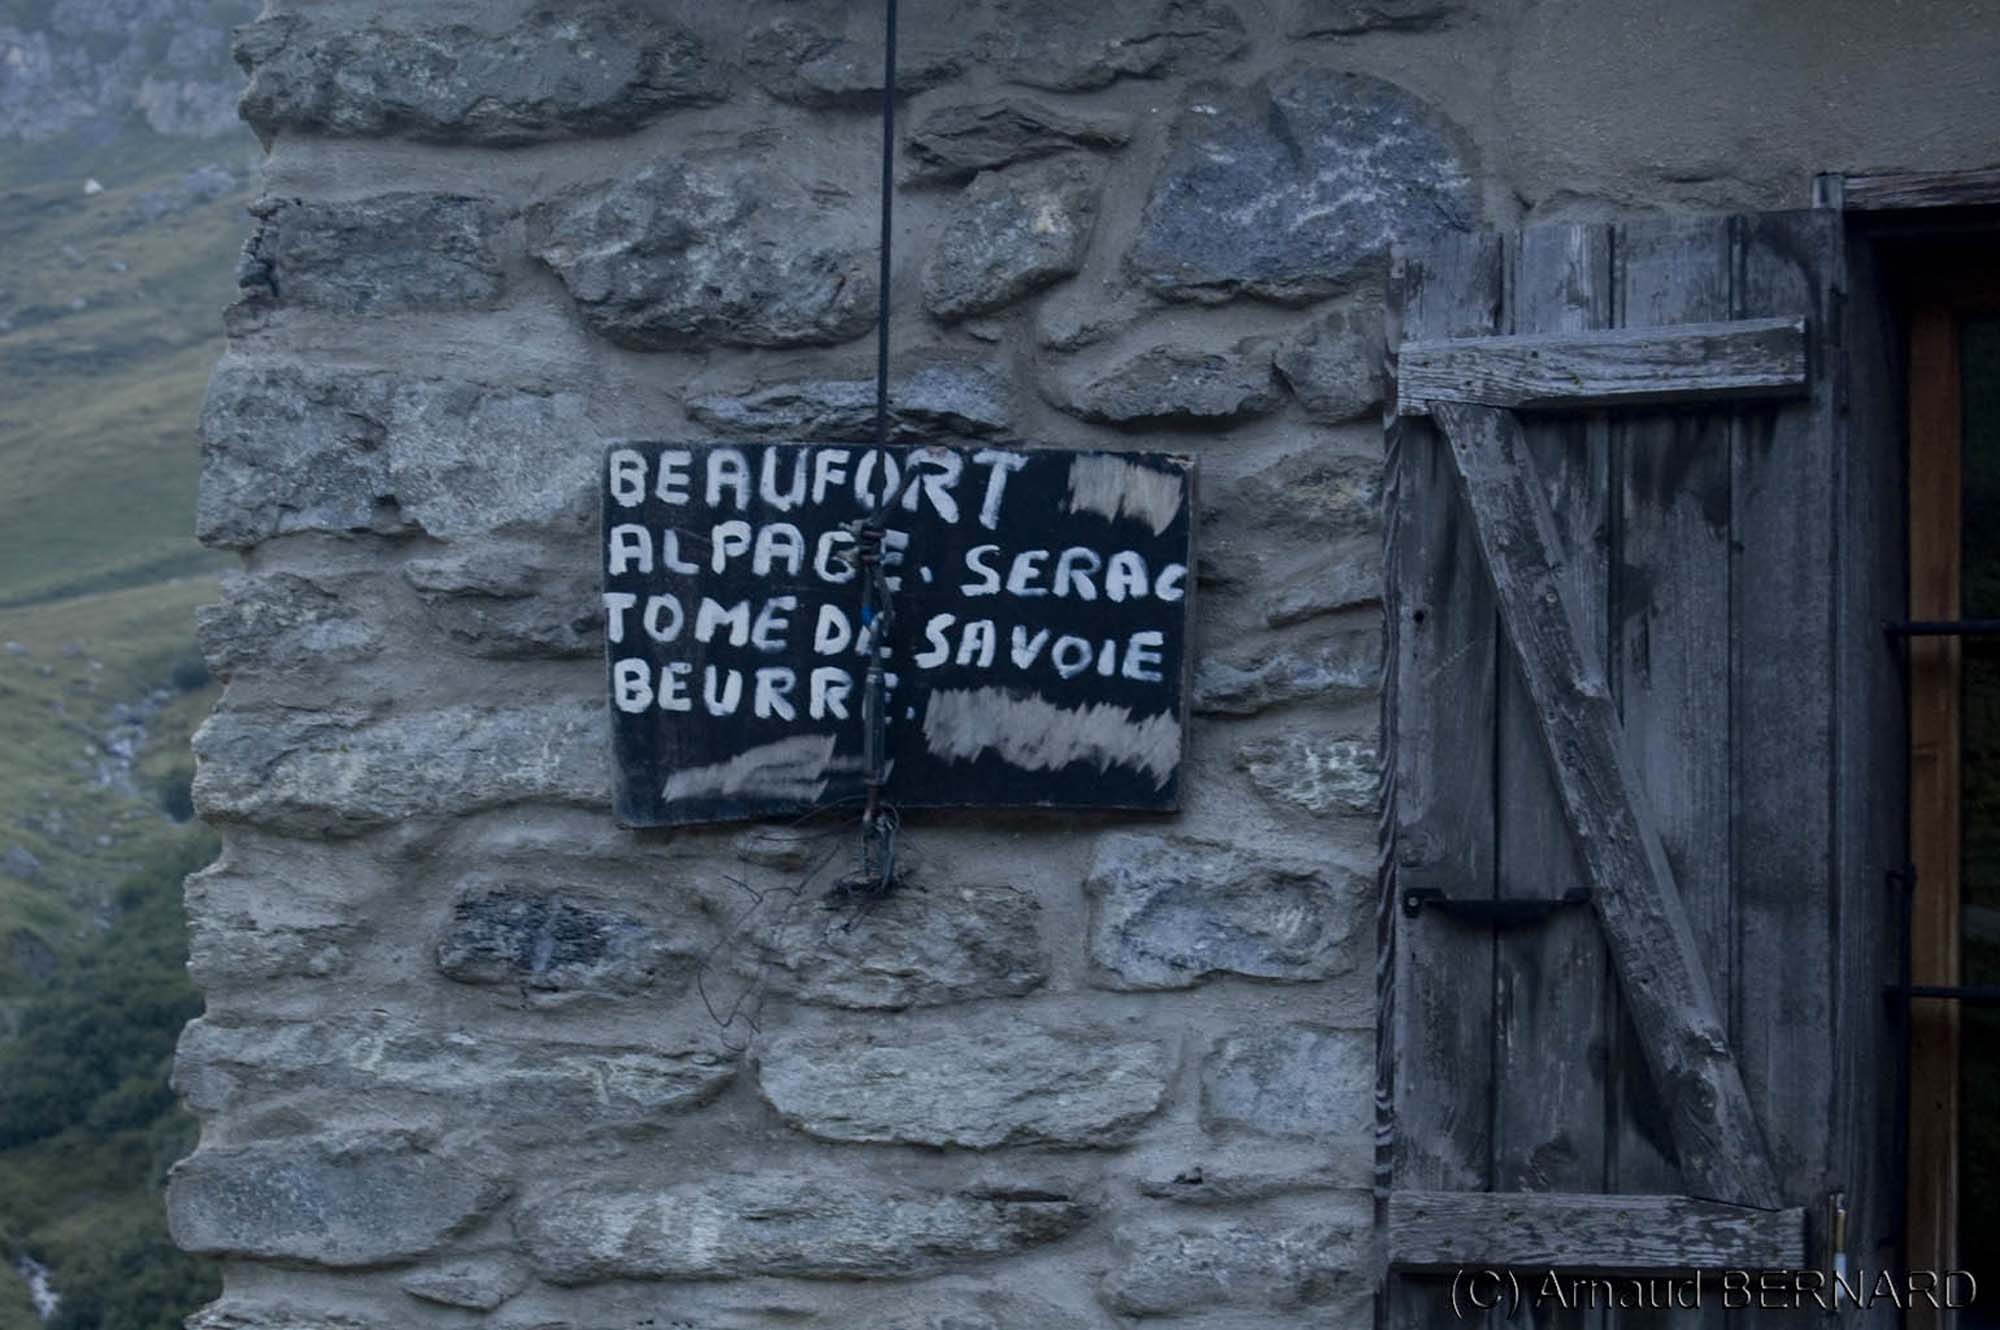 BEAUFORT
ALPAGE. SERAC
TOME DE SAVOIE
BEURRE.
(C) Arnaud BERNARD